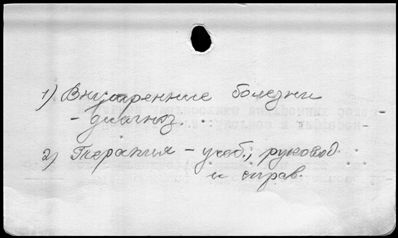 1) Внутренние болезни
- диагноз...
2) Терапия - учеб., руковод.
и справ.